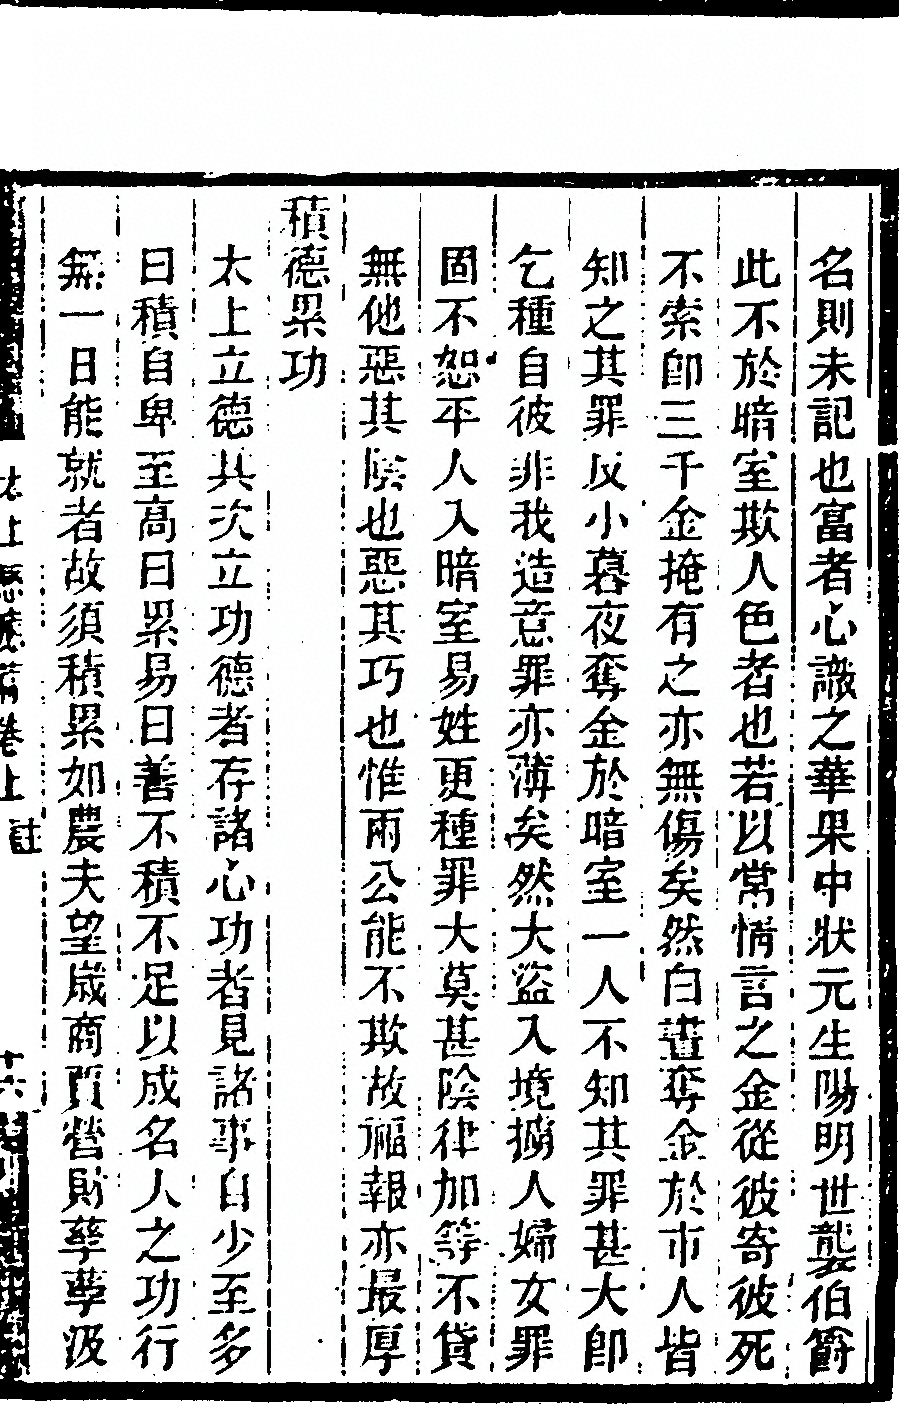 名則未記也富者心識之華果中狀元生陽明世襲伯爵
此不於暗室欺人色者也若以常情言之金從彼寄彼死
不索卽三千金掩有之亦無傷矣然白晝奪金於市人皆
知之其罪反小暮夜奪金於暗室一人不知其罪甚大卽
乞種自彼非我造意罪亦薄矣然大盜入境擄人婦女罪
固不恕平人入暗室易姓更種罪大莫甚陰律加等不貸
無他惡其陰也惡其巧也惟兩公能不欺故福報亦最厚
積德累功
太上立德其次立功德者存諸心功者見諸事自少至多
曰積自卑至高曰累易曰善不積不足以成名人之功行
無一日能就者故須積累如農夫望歲商賈營財孳孳汲
太上感應篇卷上 註 十六